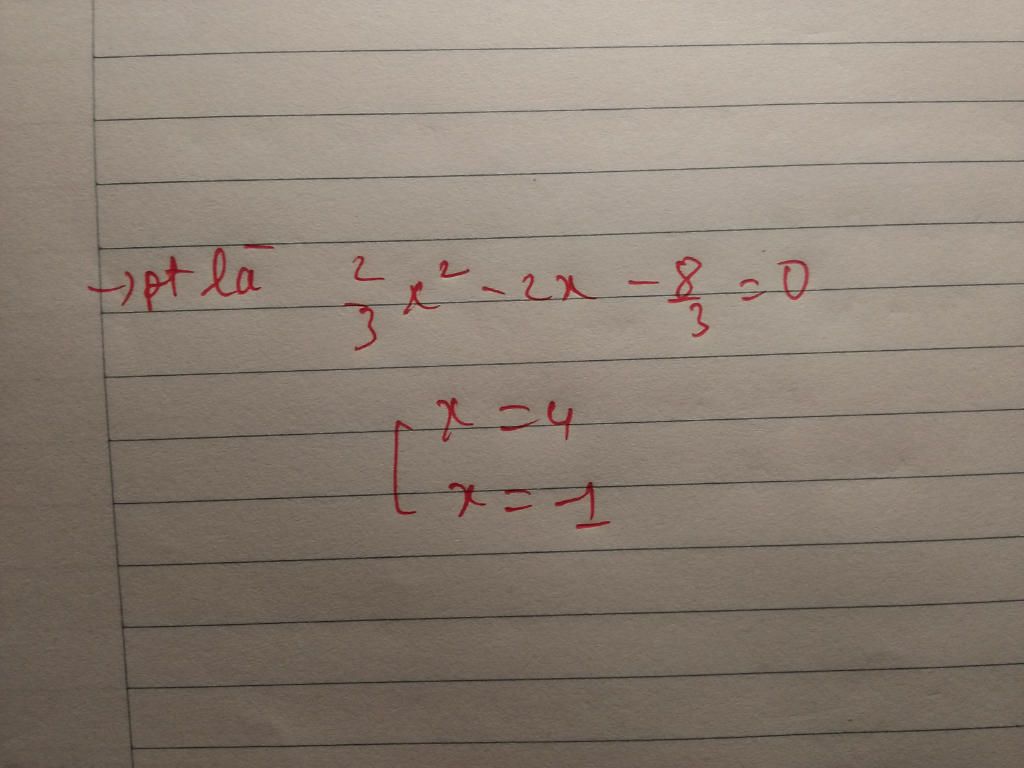 → pt là 2/3 x² - 2x - 8/3 = 0
[ x = 4
x = -1